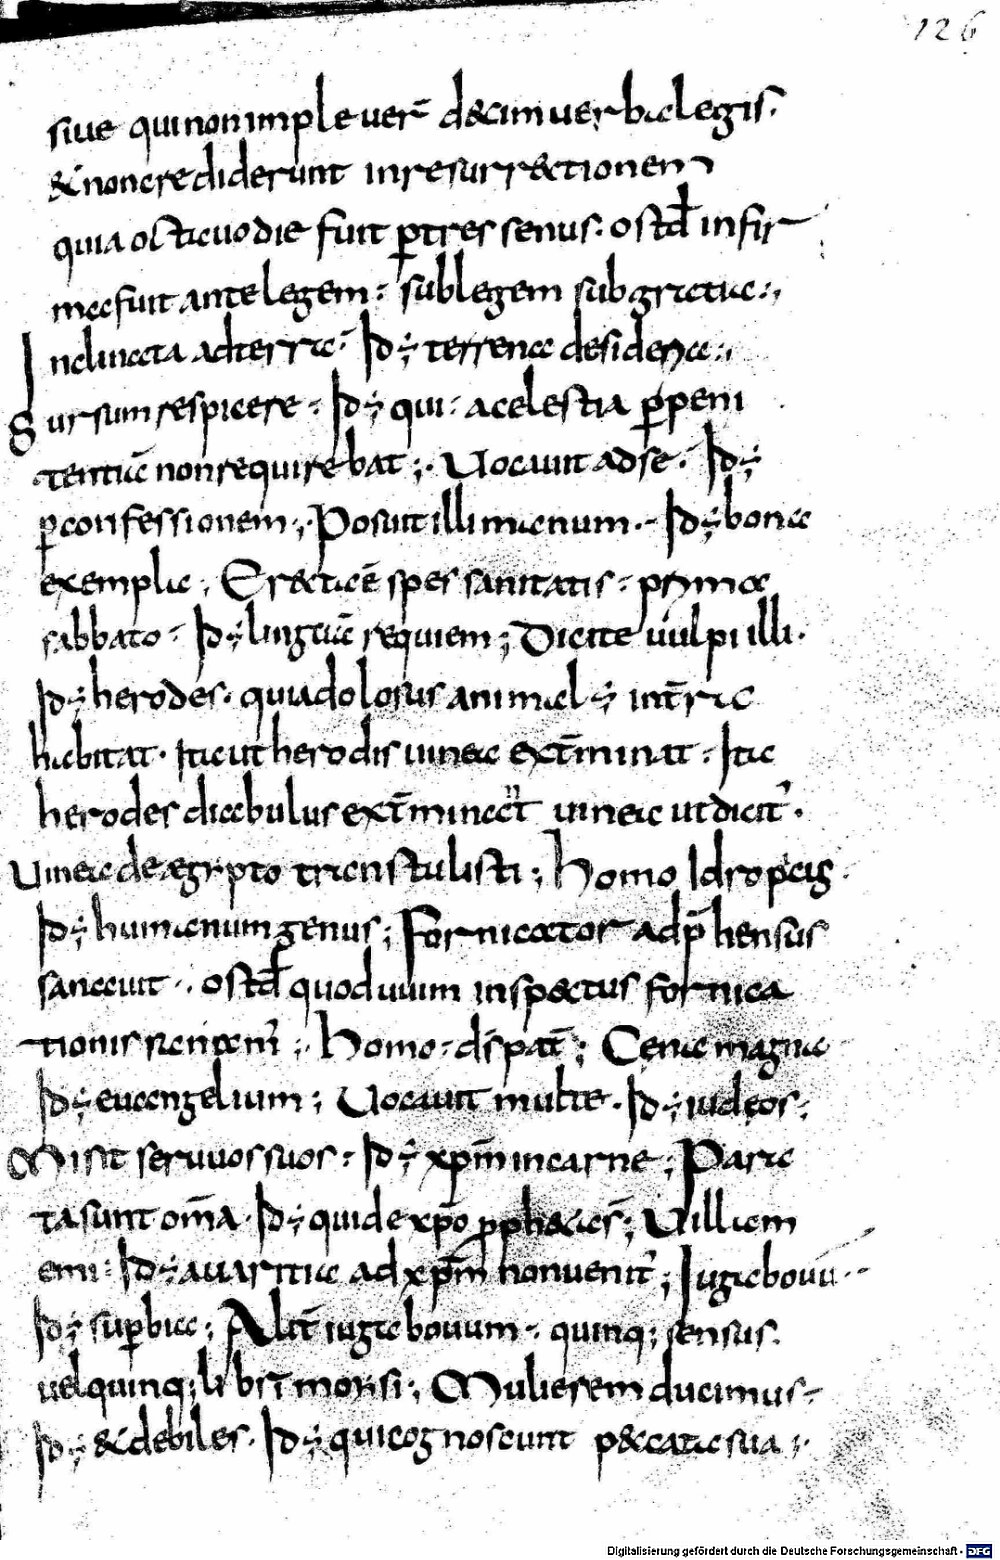 126
siue qui non impleuer̄ decim uerba legis.
& non crediderunt in resurrectionem
quia octauo die fuit ꝑ tres senus. ostd̄ infir
ma fuit ante legem: sub legem sub gratia:,
Inclinata ad terra: Id ÷ terrena desidera:,
Sursum respicere: Id ÷ qui: a celestia ꝑ peni
tentiā non requirebat;. Uocauit ad se: Id ÷
ꝑ confessionem;. Posuit illi manum. Id ÷ bona
exempla; Erecta ē spes sanitatis: prima
sabbato: Id ÷ lingua requiem; Dicite uulpi illi.
Id ÷ herodes. quia dolosus animal ÷ in t̄ra
habitat. Ita ut herodis uinea ext̄minat: Ita
herodes diabulus ext̄minat uinea ut dicit̓.
Uinea de ægypto transtulisti; Homo Idropcig
Id ÷ humanum genus; Fornicator adp̄hensus
sanauit. ostd̄ quod uium inspectus fornica
tionis; Homo: dispat̄; Cena magna
Id ÷ euangelium; Uocauit multe. Id ÷ iudeos;
Misit seruuos suos: Id ÷ xp̄m in carne; Para
ta sunt om̄a. Id ÷ qui de xp̄o ꝓphetes̄; Uillam
emi: Id ÷ auaritia ad xp̄m non uenit̓; Iuga bouū
Id ÷ suꝑbia; Alit̄ iuga bouum. quinq; sensus.
uel quinq; libri moysi; Mulierem ducimus
Id ÷ & debiles. Id ÷ qui cognoscunt peccata sua;.
Digitalisierung gefördert durch die Deutsche Forschungsgemeinschaft - DFG